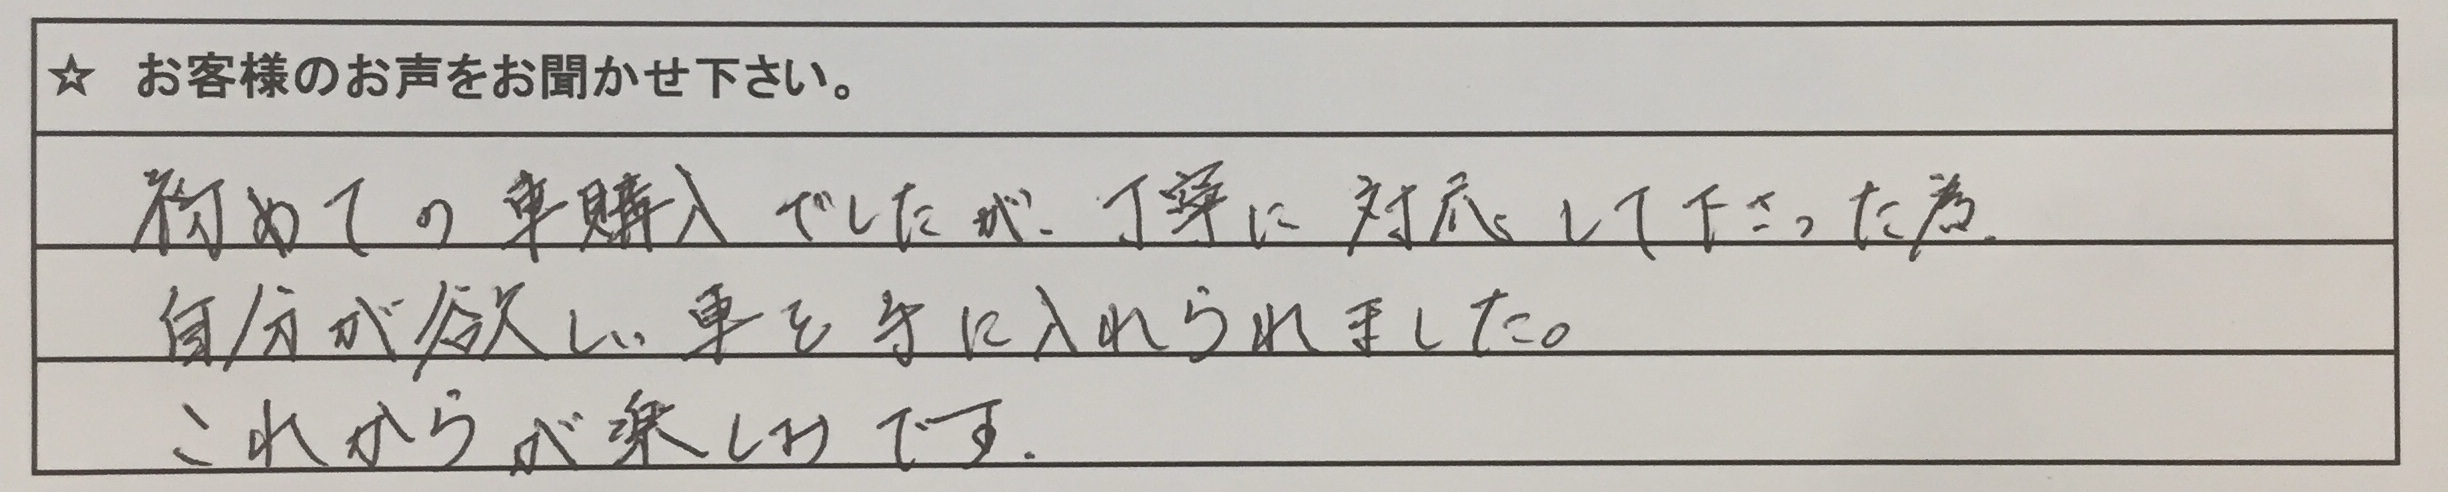 ☆ お客様のお声をお聞かせ下さい。
初めての車購入でしたが、丁寧に対応して下さった為、
自分が欲しい車を手に入れられました。
これからが楽しみです.